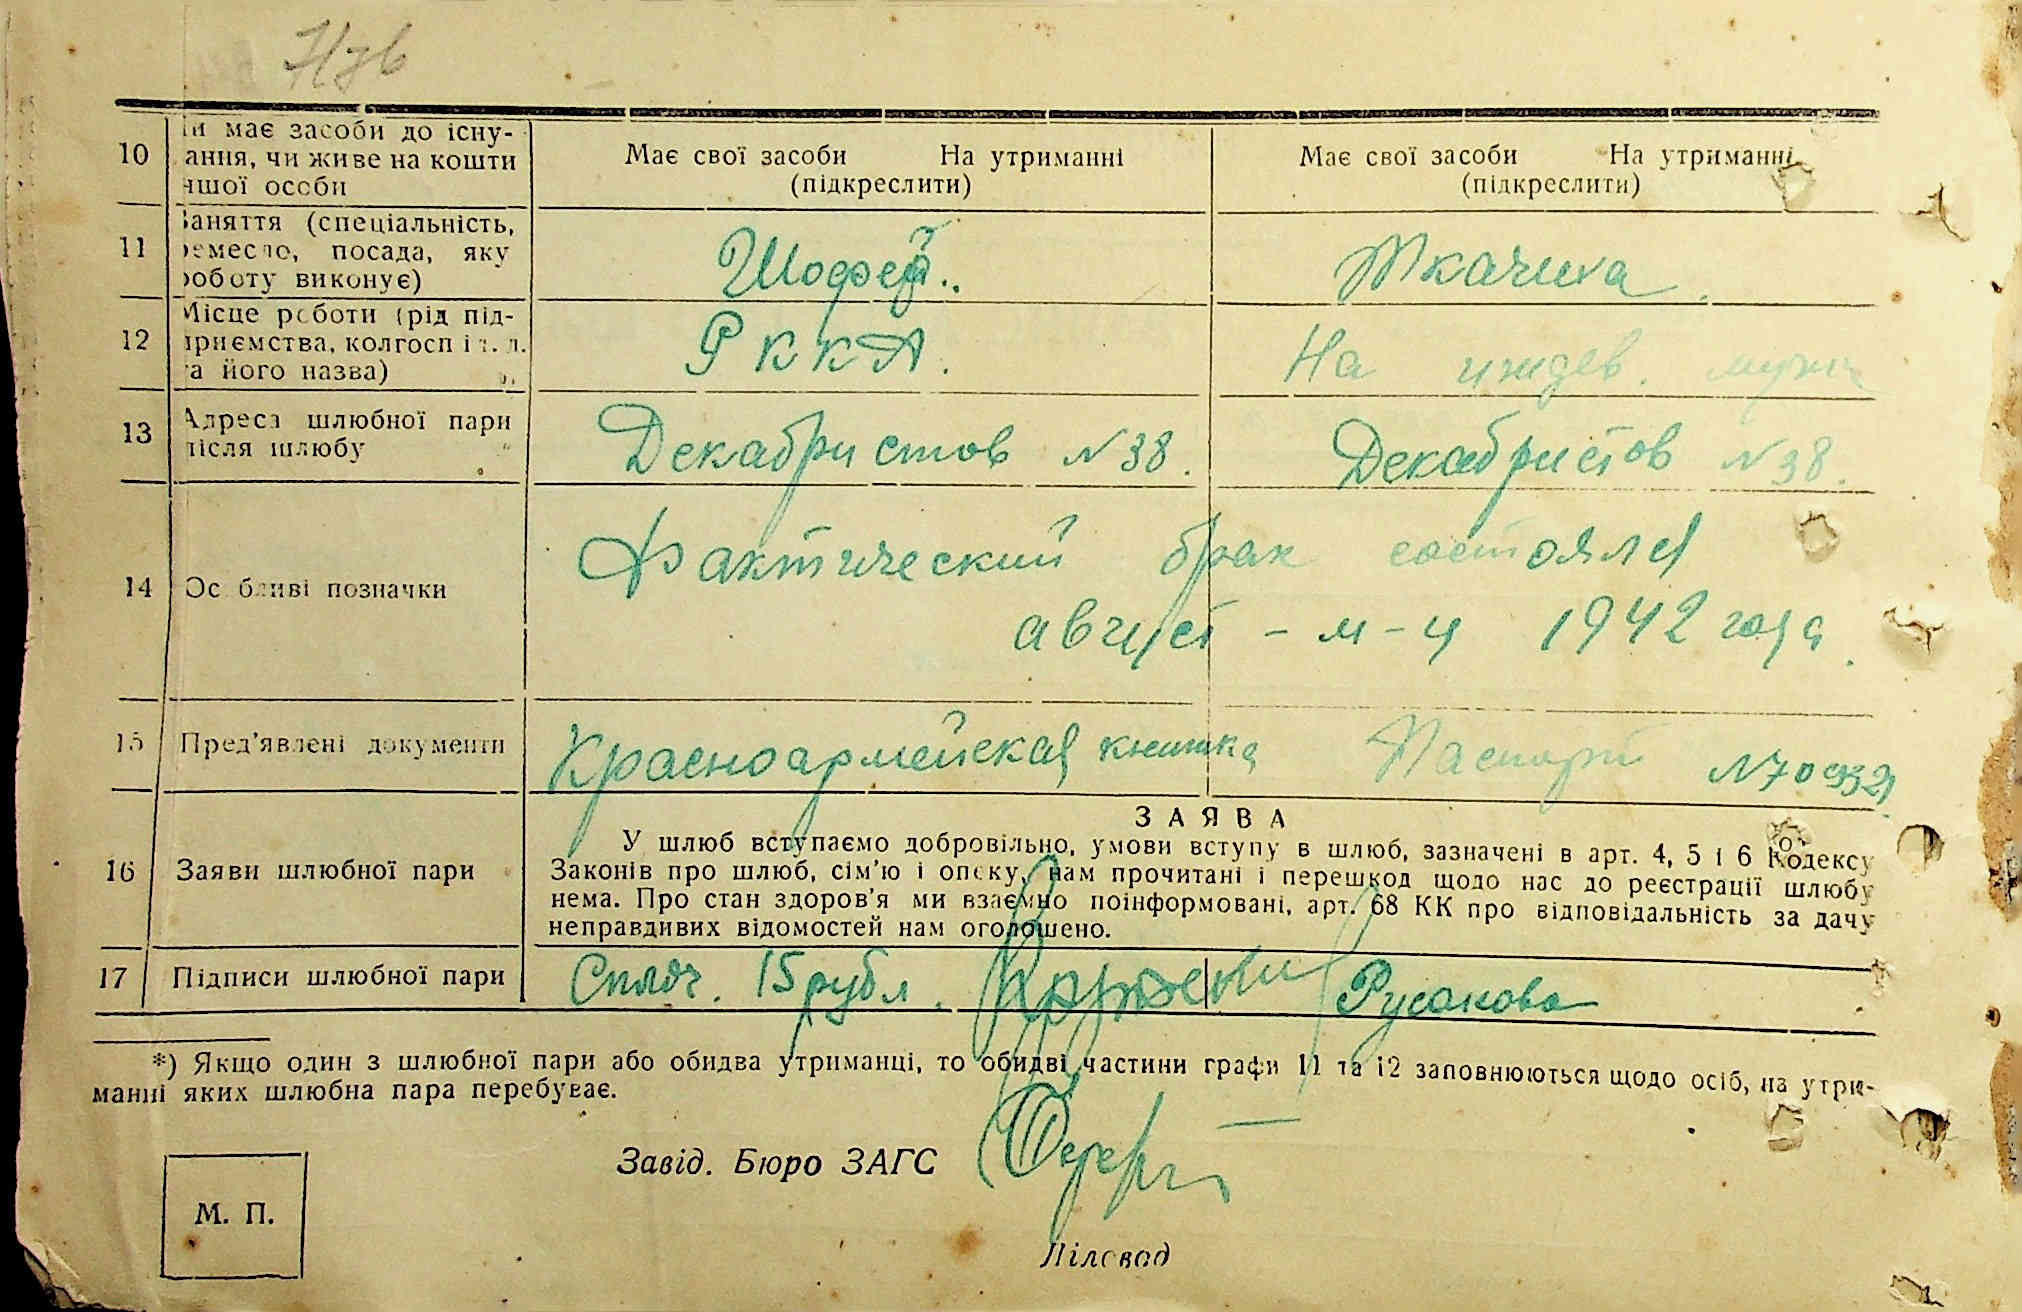 10
и має засоби до існу-
ання, чи живе на кошти
ншої особи
Має свої засоби На утриманні
(підкреслити)
Має свої засоби На утриманні
(підкреслити)
11
Заняття (спеціальність,
ремесло, посада, яку
роботу виконує)
Шофер.
Ткачиха.
12
Місце роботи (рід під-
приємства, колгосп і т. д.
та його назва)
РККА.
На иждев. мужа
13
Адреса шлюбної пари
після шлюбу
Декабристов N 38.
Декабристов N 38.
14
Ос бливі позначки
Фактический брак состоялся
август - м-ц 1942 года.
15
Пред'явлені документи
Красноармейская книжка
Паспорт
16
Заяви шлюбної пари
ЗАЯВА
У шлюб вступаємо добровільно, умови вступу в шлюб, зазначені в арт. 4, 5 і 6 Кодексу
Законів про шлюб, сім'ю і опску, нам прочитані і перешкод щодо нас до реєстрації шлюбу
нема. Про стан здоров'я ми взаємно поінформовані, арт. 68 КК про відповідальність за дачу
неправдивих відомостей нам оголошено.
17
Підписи шлюбної пари
15 рубл.
Русакова
*) Якщо один з шлюбної пари або обидва утриманці, то обидві частини графи 11 та 12 заповнюються щодо осіб, на утри-
манні яких шлюбна пара перебуває.
Завід. Бюро ЗАГС
М. П.
Діловод